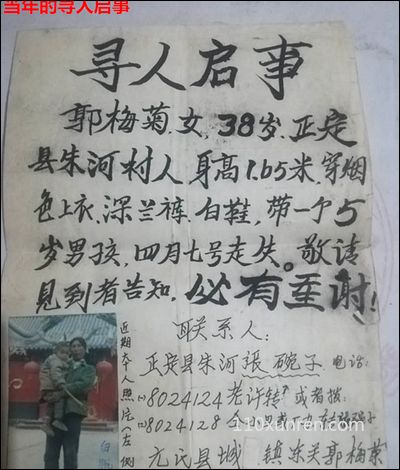 当年的寻人启事
寻人启事
郭梅菊女,38岁,正定
县朱河村人身高1.65米,穿烟
色上衣,深兰裤,白鞋,带一个5
岁男孩,四月七号走失。敬请
見到者告知,必有重谢!
联系人:
正定县朱河張碗子 电话:
8024124老许转 或者拨:
8024128
元氏县城 镇东关郭梅荣
近期本人照片(左侧
110xunren.com